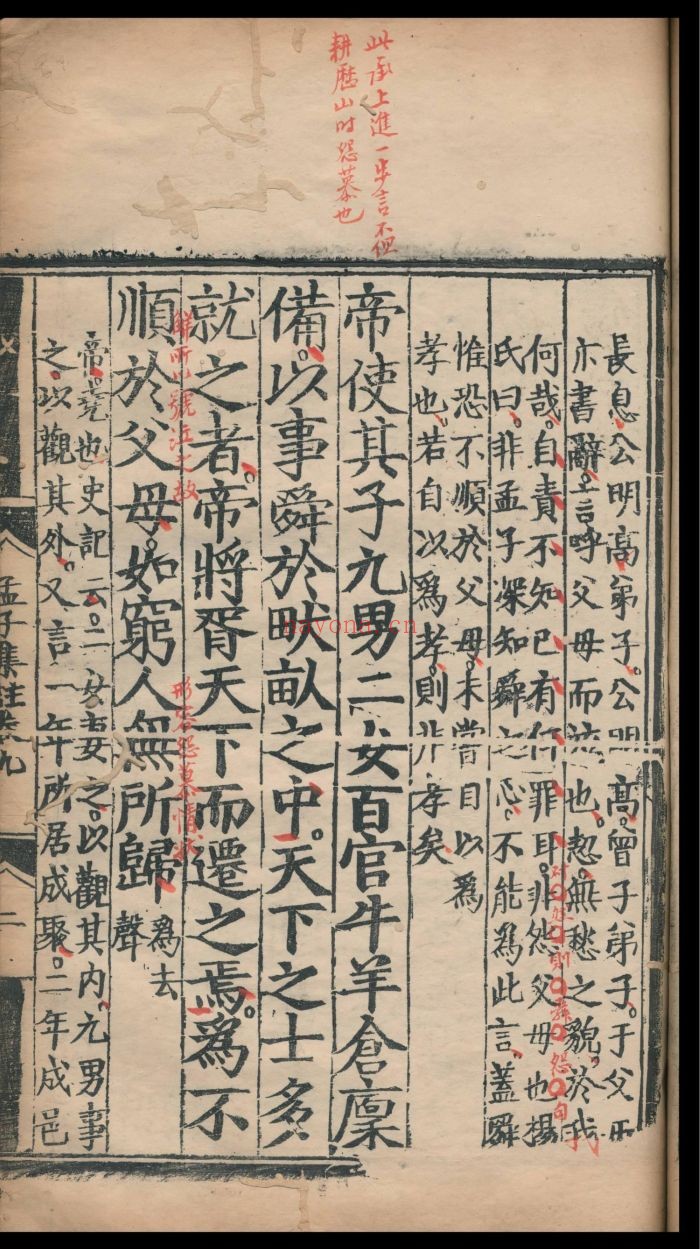 此承上進一步言不但
耕歷山时怨慕也
長息公明高弟子公明高曾子弟子于父母
亦書辭言呼父母而泣也恝無愁之貌於我
何哉自責不知已有何罪耳非怨父母也楊
氏曰非孟子深知舜之心不能為此言蓋舜
惟恐不順於父母未嘗自以為
孝也若自以為孝則非孝矣
帝使其子九男二女百官牛羊倉廩
備以事舜於畎畝之中天下之士多
就之者帝將胥天下而遷之焉為不
解所以號泣之故
順於父母如窮人無所歸
形容怨慕情狀
為去
聲
帝堯也史記云二女妻之以觀其內九男事
之以觀其外又言一年所居成聚二年成邑
孟子集註卷九
二
nayona.cn